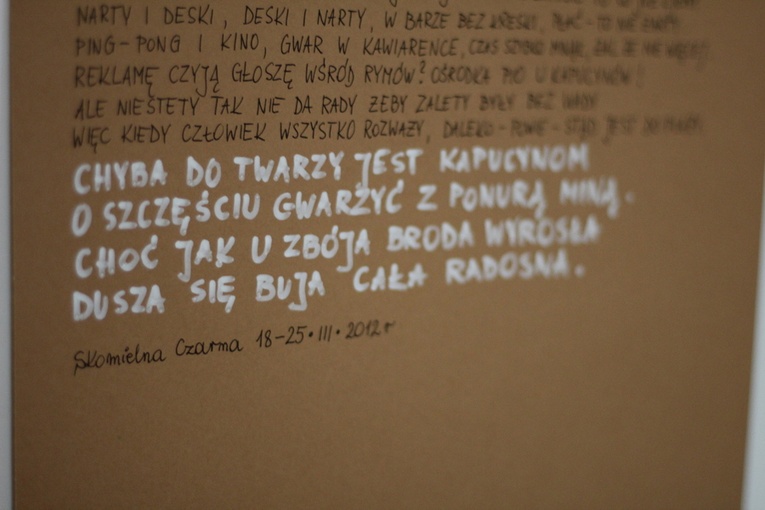 NARTY I DESKI, DESKI I NARTY, W BARZE BEZ KRESKI, PŁAĆ - TO NIE ŻARTY
PING-PONG I KINO, GWAR W KAWIARENCE, CZAS SZYBKO MIJA, ŻAL, ŻE NIE WIĘCEJ.
REKLAMĘ CZYJĄ GŁOSZĘ WŚRÓD RYMÓW? OŚRODKA PYO U KAPUCYNÓW!
ALE NIESTETY TAK NIE DA RADY ŻEBY ZALETY BYŁY BEZ WADY
WIĘC KIEDY CZŁOWIEK WSZYSTKO ROZWAŻY, DALEKO - POWIE - STĄD JEST DO PLAŻY.
CHYBA DO TWARZY JEST KAPUCYNOM
O SZCZĘŚCIU GWARZYĆ Z PONURĄ MINĄ.
CHOĆ JAK U ZBÓJA BRODA WYROSŁA
DUSZA SIĘ BUJA CAŁA RADOSNA.
Skomielna Czarna 18-25.III.2012r